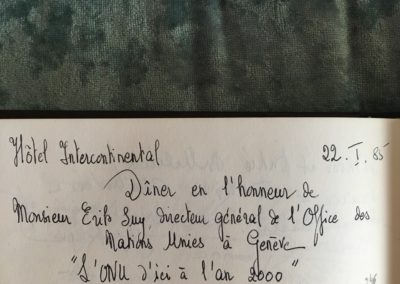 Hôtel Intercontinental 22.I.85
Dîner en l'honneur de
Monsieur Erik Suy, directeur général de l'Office des
Nations Unies à Genève
"L'ONU d'ici à l'an 2000"